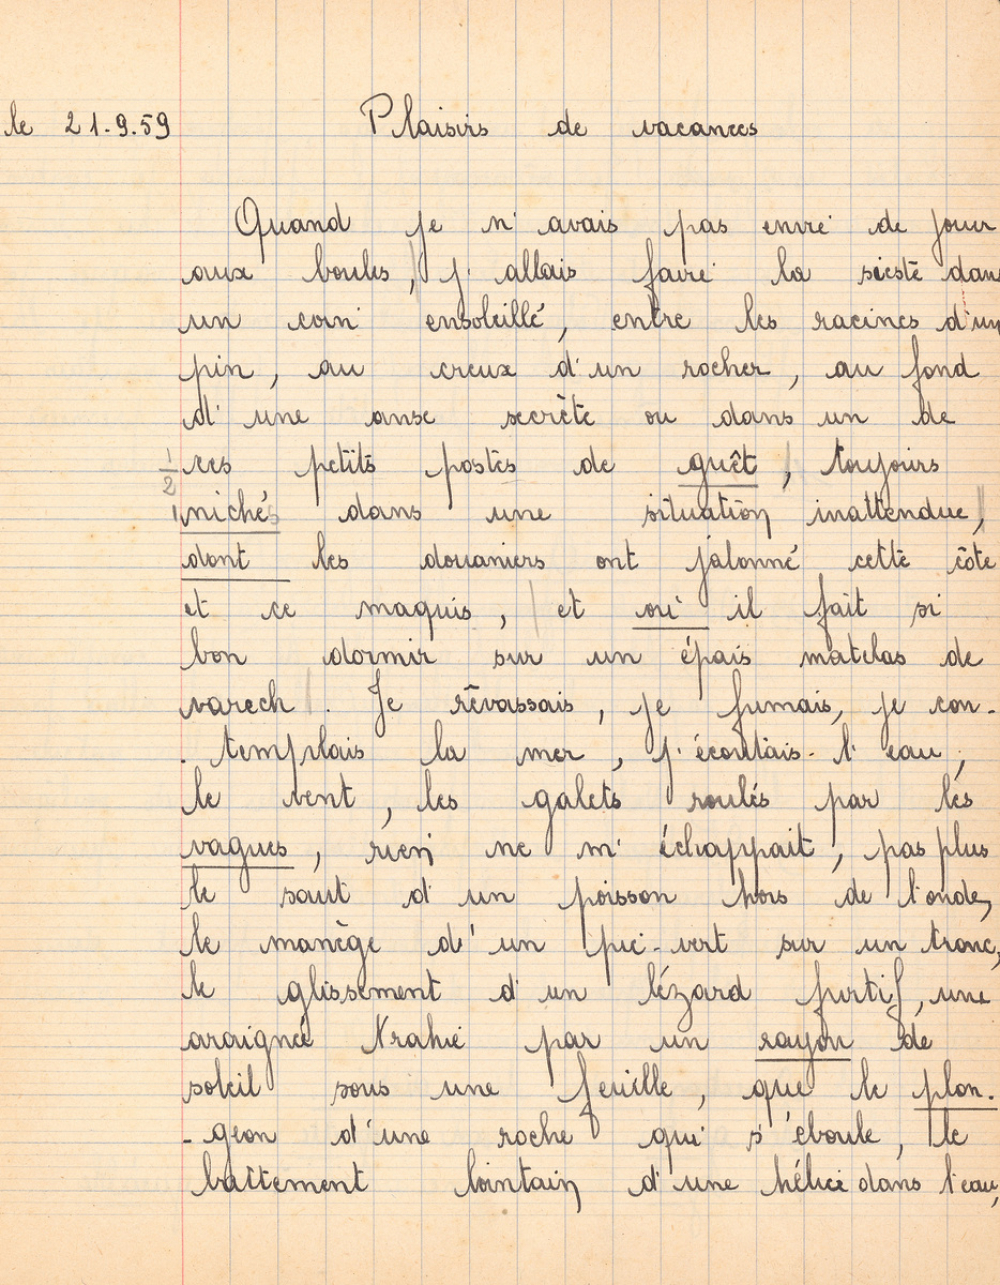 le 21.9.59 Plaisirs de vacances
Quand je n'avais pas envie de jouer
aux boules, j'allais faire la sieste dans
un coin ensoleillé, entre les racines d'un
pin, au creux d'un rocher, au fond
d'une anse secrète ou dans un de
1/2 ces petits postes de guêt, toujours
nichés dans une situation inattendue,
dont les douaniers ont jalonné cette côte
et ce maquis, et où il fait si
bon dormir sur un épais matelas de
varech. Je rêvassais, je fumais, je con-
-templais la mer, j'écoutais l'eau,
le vent, les galets roulés par les
vagues, rien ne m'échappait, pas plus
le saut d'un poisson hors de l'onde,
le manège d'un pic-vert sur un tronc,
le glissement d'un lézard furtif, une
araignée trahie par un rayon de
soleil sous une feuille, que le plon-
-geon d'une roche qui s'éboule, le
battement lointain d'une hélice dans l'eau,